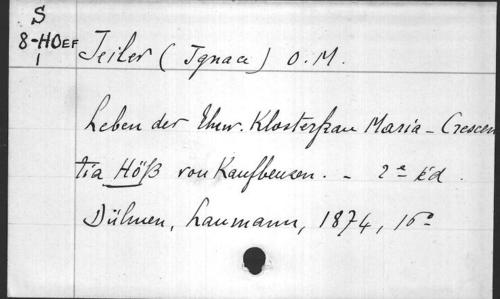 S
8-HOEF
1
Jeiler (Ignace) O.M.
Leben der Ehrw. Klosterfrau Maria-Crescen
tia Höß von Kaufbeuren. - 2e Éd.
Dülmen, Laumann, 1874, 16°